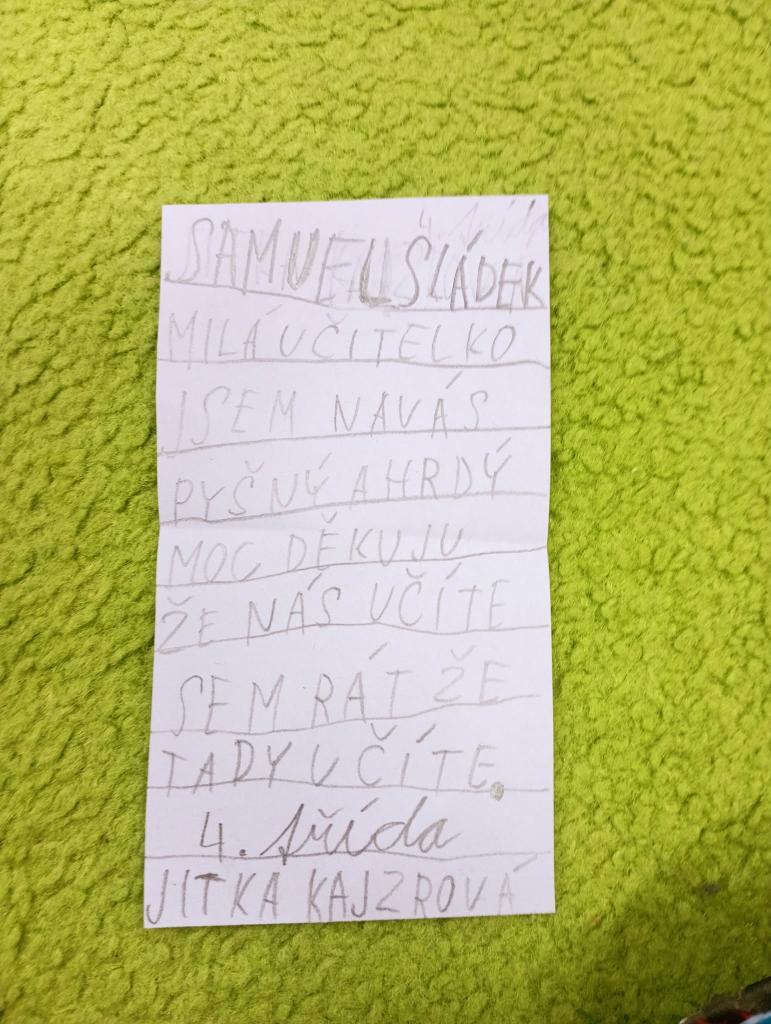 SAMUEL SLÁDEK
MILÁ UČITELKO
JSEM NAVÁS
PYŠNÝ A HRDÝ
MOC DĚKUJU
ŽE NÁS UČÍTE
SEM RÁT ŽE
TADY UČÍTE.
4. třída
JITKA KAJZROVÁ